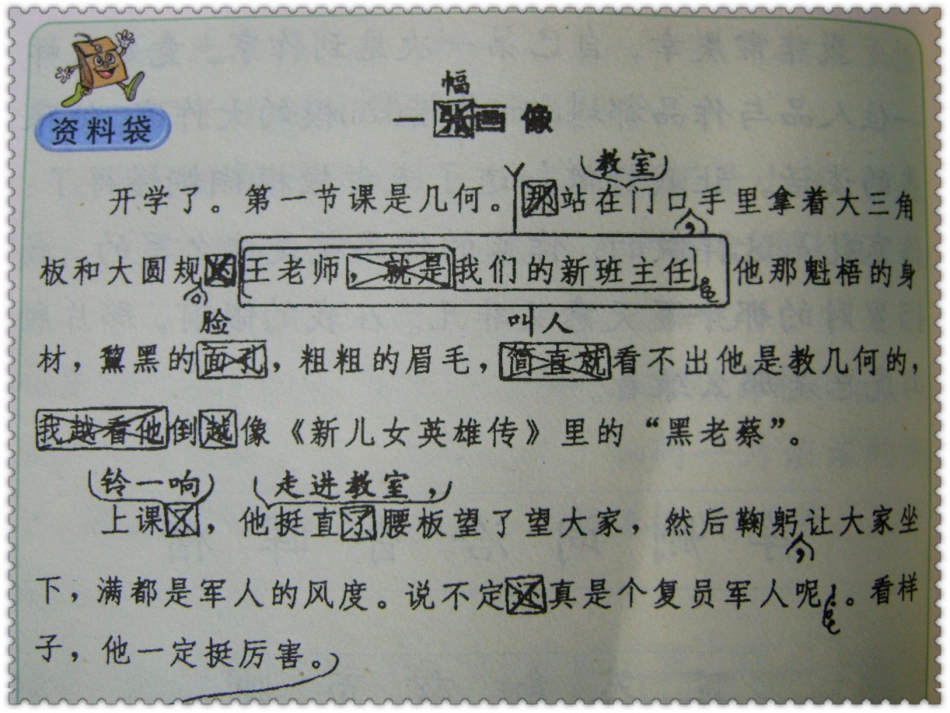 资料袋
幅
一张画像
教室
开学了。第一节课是几何。那站在门口，手里拿着大三角
板和大圆规的王老师，就是我们的新班主任。他那魁梧的身
脸 叫人
材，黧黑的面孔，粗粗的眉毛，简直就看不出他是教几何的，
我越看他倒越像《新儿女英雄传》里的“黑老蔡”。
铃一响 走进教室，
上课了，他挺直了腰板望了望大家，然后鞠躬，让大家坐
下，满都是军人的风度。说不定还真是个复员军人呢！。看样
子，他一定挺厉害。